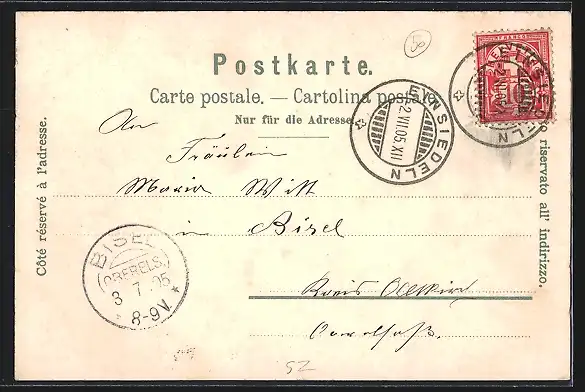 56
Postkarte.
Carte postale. — Cartolina postale.
Nur für die Adresse.
EINSIEDELN
2.VII.05.XII
EINSIEDELN
FRANCO
Côté réservé à l'adresse.
riservato all' indirizzo.
An
Fräulein
Maria Witt
in Bisel
Kreis Altkirch
Oberelsaß.
BISEL
(OBERELS.)
3 7 05
8-9V.
SZ